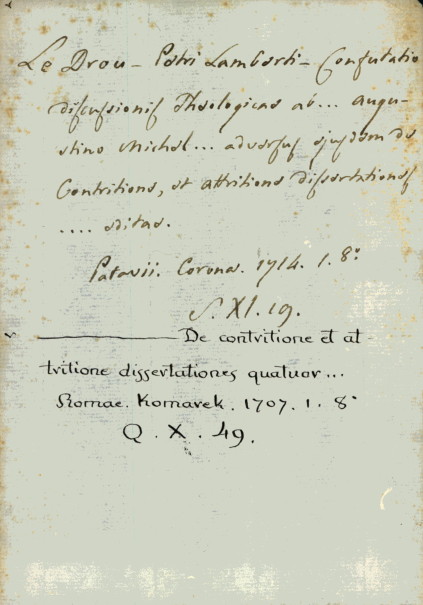 Le Drou - Petri Lamberti - Confutatio
discussionis Theologicae ab... augu-
stino Michel... adversus ejusdem de
Contritione, et attritione dissertationes
.... editae.
Patavii. Corona. 1714. 1. 8°
S. XI. 19.
——— De contritione et at-
tritione dissertationes quatuor...
Romae. Komarek. 1707. 1. 8°
Q. X. 49.